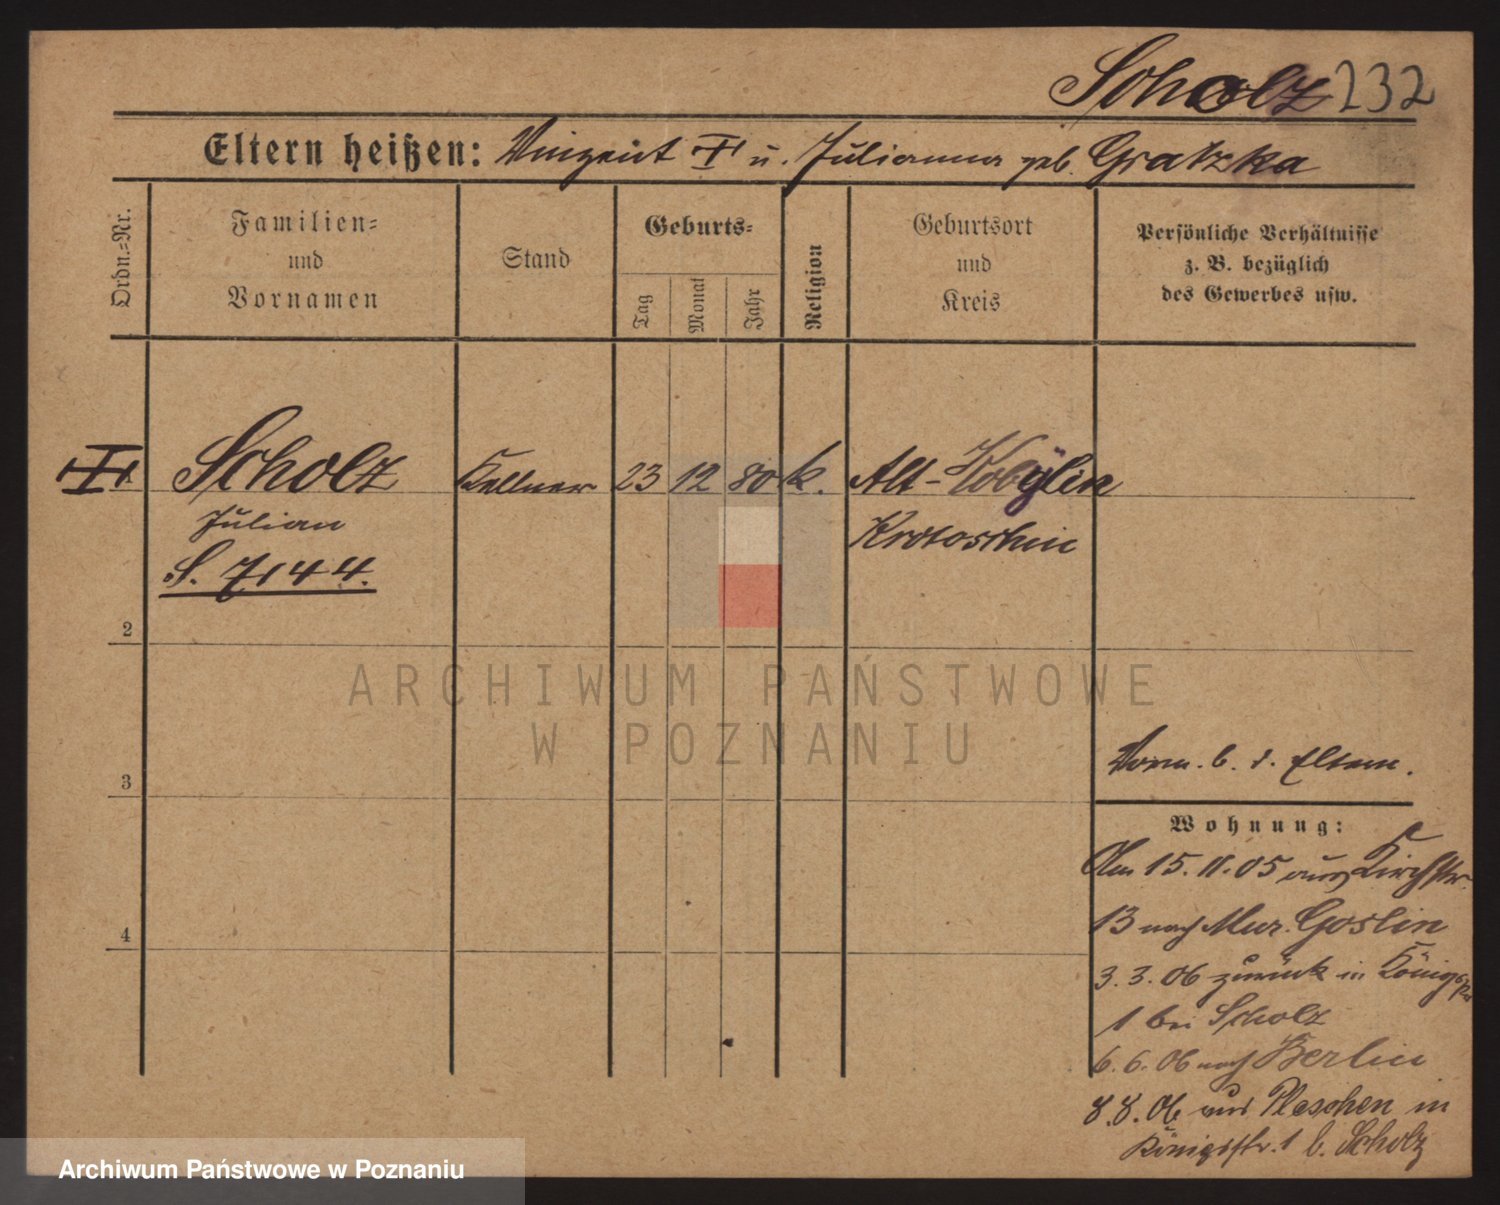 Scholz 232
Eltern heißen: Vinzent † u. Julianna geb. Gratzka
Ordn.-Nr.
Familien-
und
Vornamen
Stand
Geburts-
Tag
Monat
Jahr
Religion
Geburtsort
und
Kreis
Persönliche Verhältnisse
z. B. bezüglich
des Gewerbes usw.
Scholz Kellner 23 12 80 k. Alt-Kobylin
Julian Krotoschin
S. 7144.
2
3
4
Vorm. b. d. Eltern.
Wohnung:
Am 15.11.05 aus Kirchstr.
13 nach Mur. Goslin
3.3.06 zurück in Königstr
1 bei Scholz
6.6.06 nach Berlin
8.8.06 aus Pleschen in
Königsstr. 1 b. Scholz
ARCHIWUM PAŃSTWOWE
W POZNANIU
Archiwum Państwowe w Poznaniu